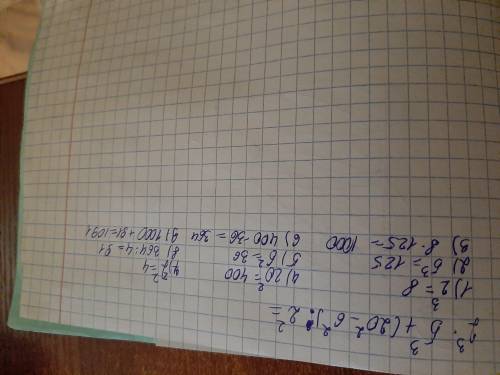 2³ · 5³ + (20² - 6²) : 2² =
1) 2³ = 8
2) 5³ = 125
3) 8 · 125 = 1000
4) 20² = 400
5) 6² = 36
6) 400 - 36 = 364
7) 2² = 4
8) 364 : 4 = 91
9) 1000 + 91 = 1091